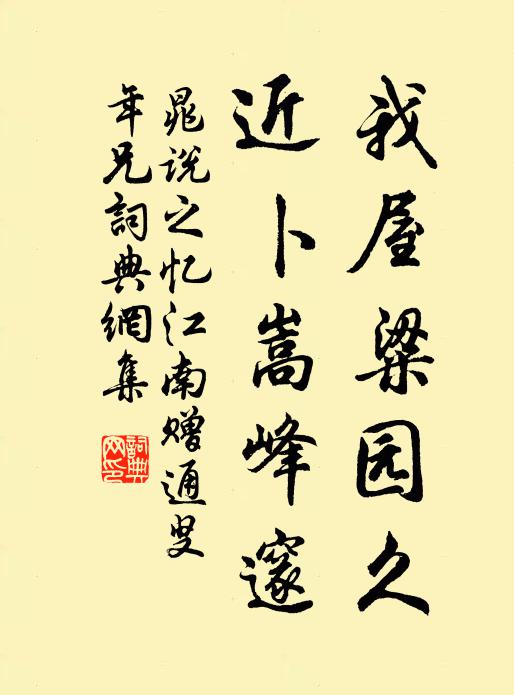 我屋梁园久
近卜嵩峰邃
晁说之忆江南赠通叟
年兄詞典網集
詞典网印